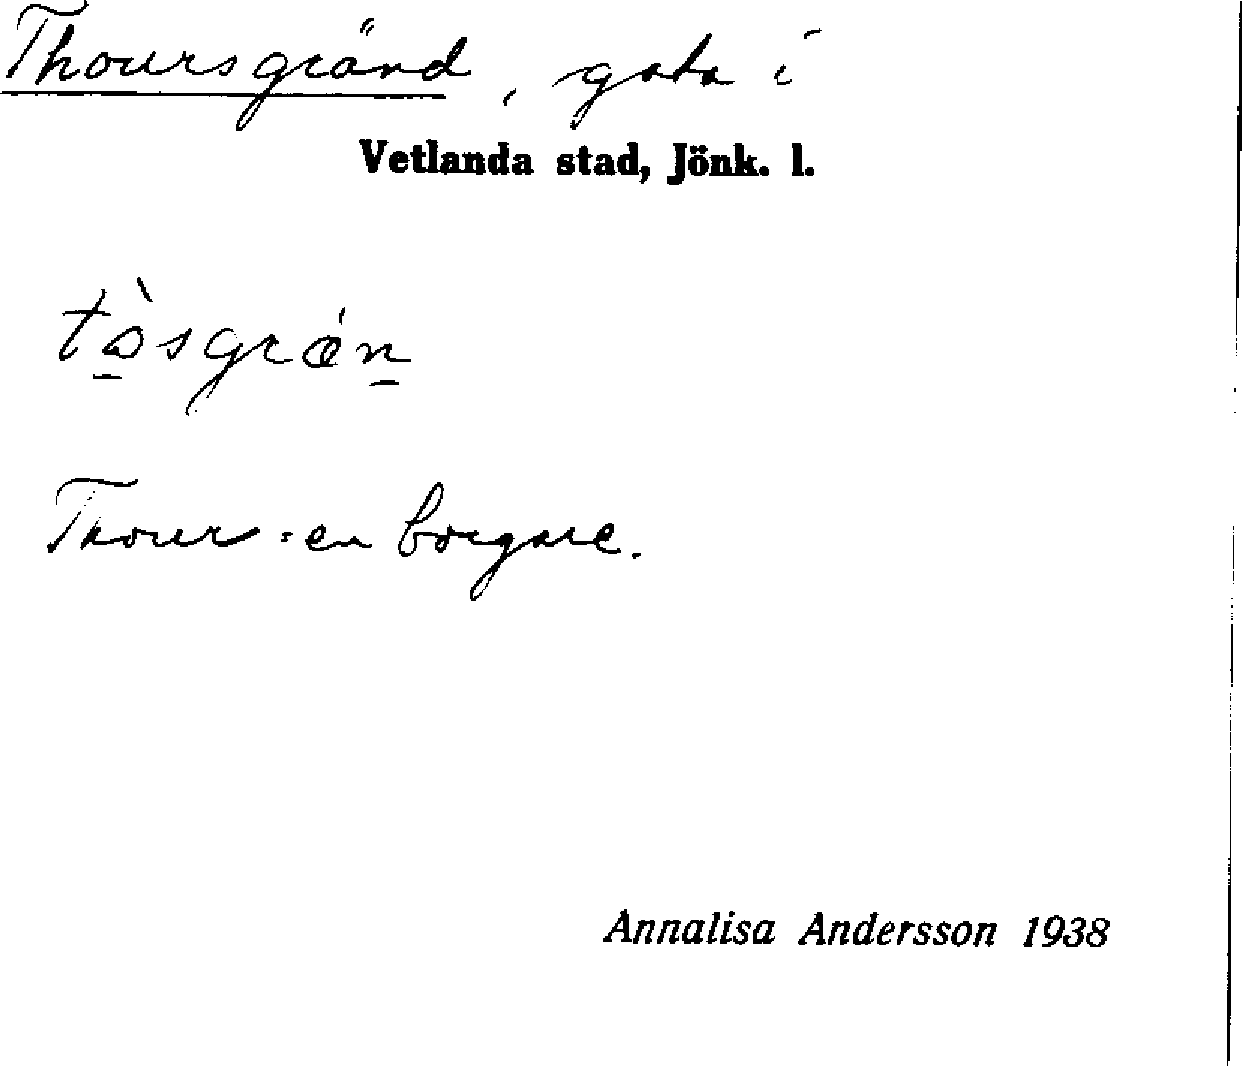 Thoursgränd, gata i
Vetlanda stad, Jönk. l.
tòsgrǽn
Thour = en borgare.
Annalisa Andersson 1938